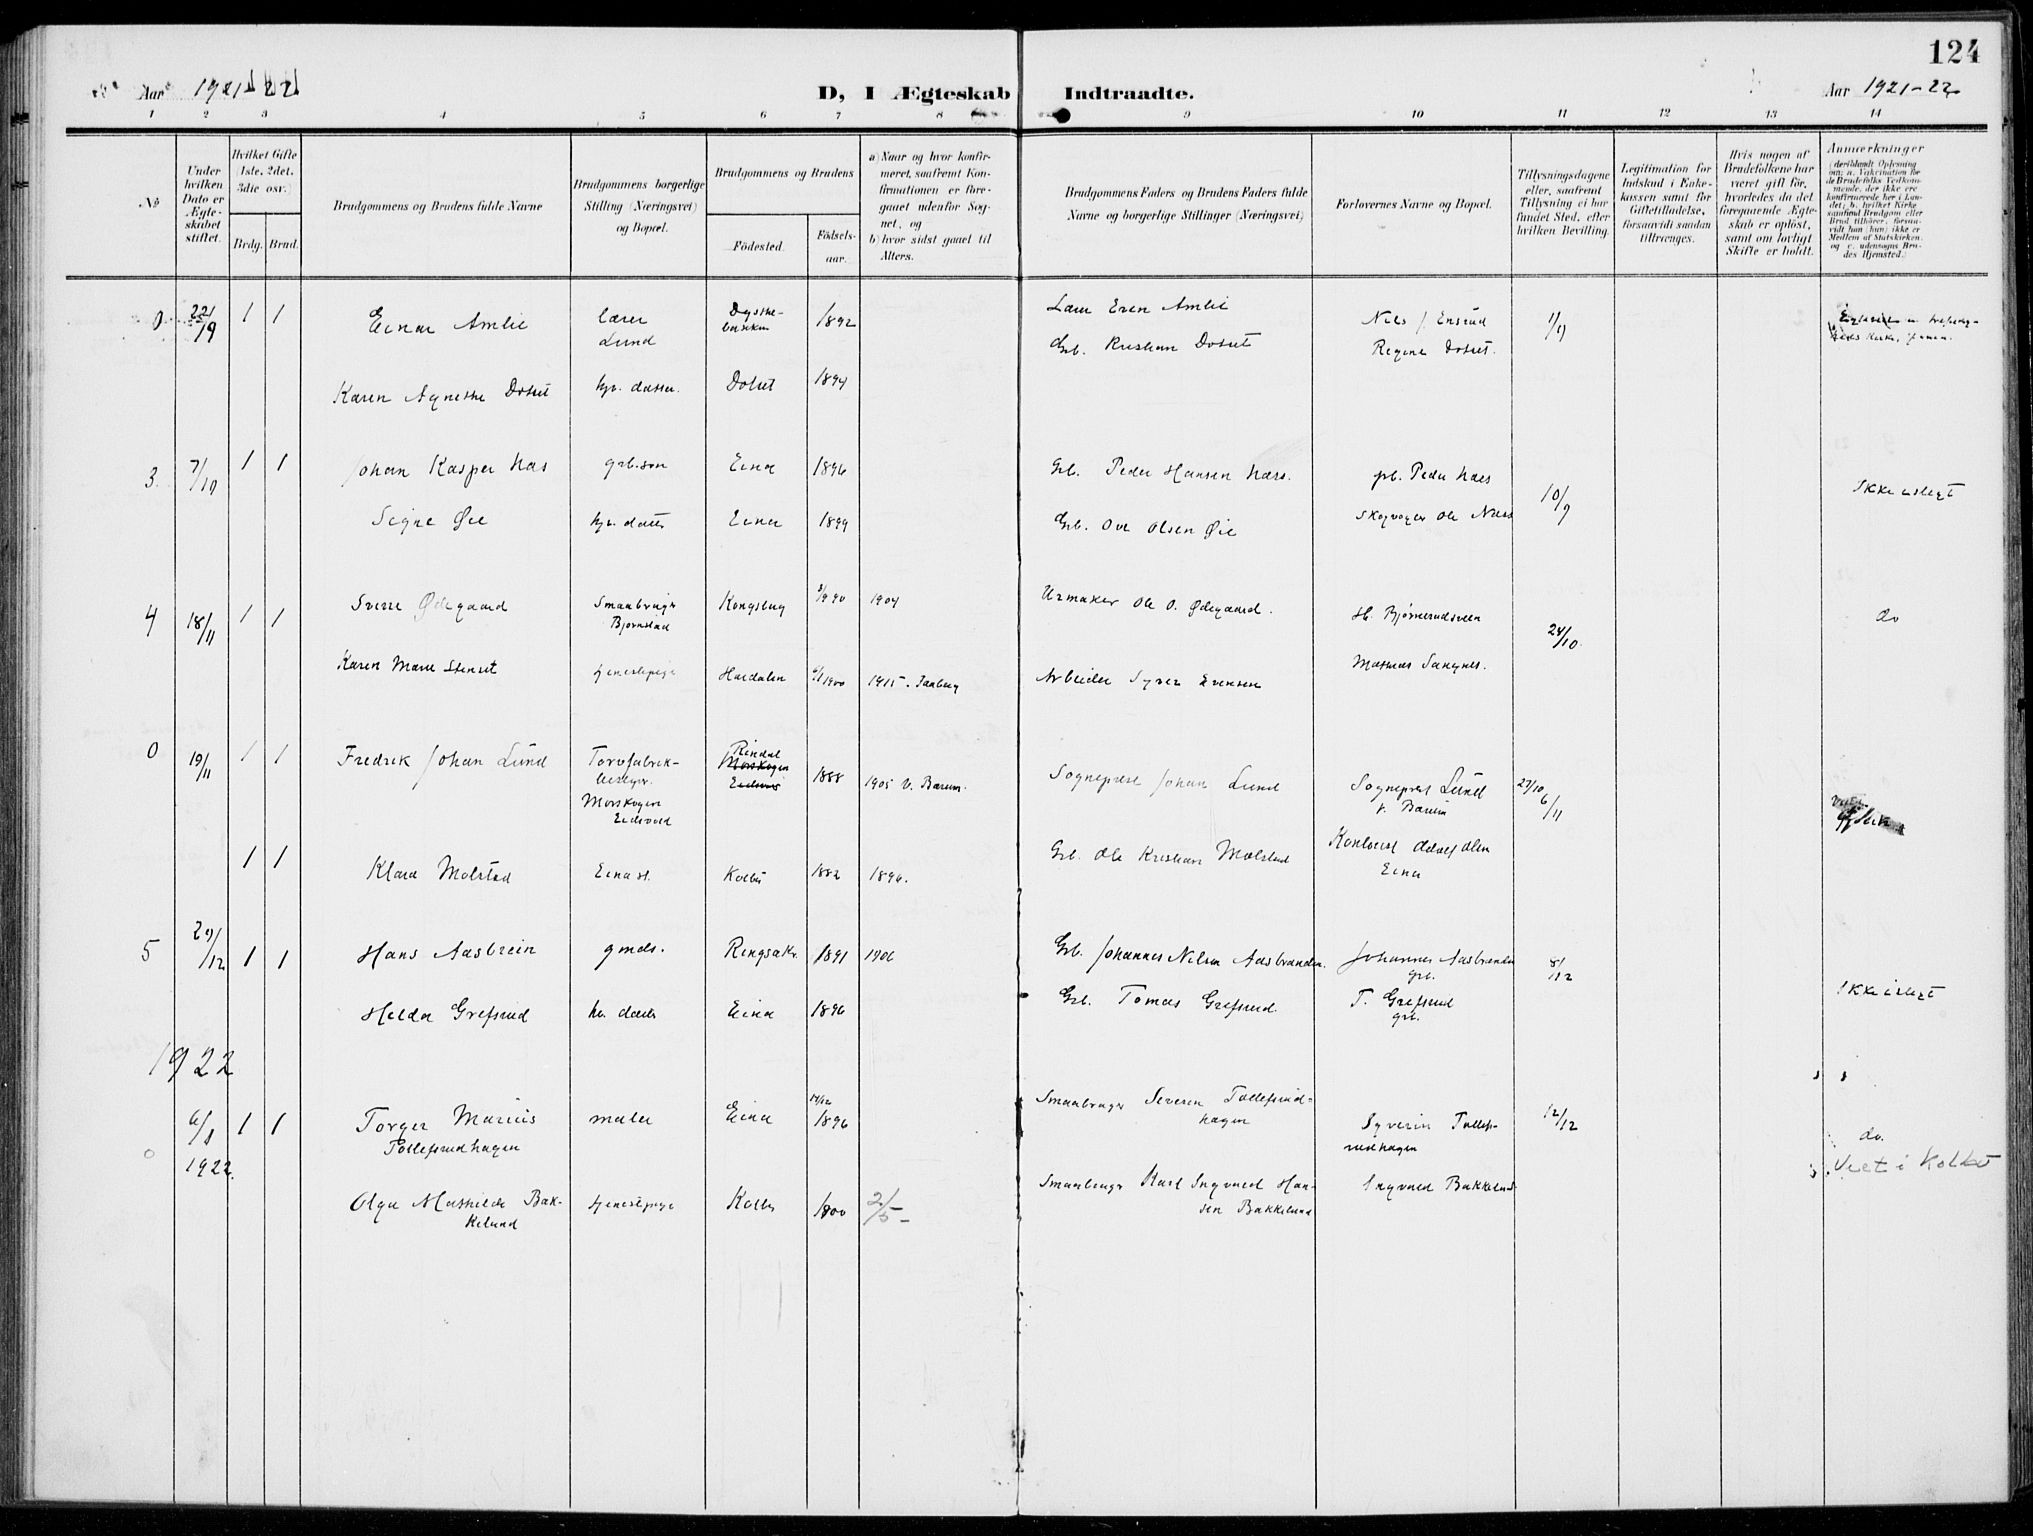 124
Aar 1921-22
D, I Ægteskab Indtraadte.
Aar 1921-22
1 2 3 4 5 6 7 8 9 10 11 12 13 14
No
Under hvilken Dato er Ægteskabet stiftet.
Hvilket Gifte (1ste, 2det, 3die osv.)
Brdg. Brud.
Brudgommens og Brudens fulde Navne
Brudgommens borgerlige Stilling (Næringsvei) og Bopæl.
Brudgommens og Brudens
Fødested.
Fødselsaar.
a) Naar og hvor konfirmeret, saafremt Konfirmationen er foregaaet udenfor Sognet, og
b) hvor sidst gaaet til Alters.
Brudgommens Faders og Brudens Faders fulde Navne og borgerlige Stillinger (Næringsvei)
Forlovernes Navne og Bopæl.
Tillysningsdagene eller, saafremt Tillysning ei har fundet Sted, efter hvilken Bevilling.
Legitimation for Indskud i Enkekassen samt for Giftetilladelse, forsaavidt saadan tiltrænges.
Hvis nogen af Brudefolkene har været gift før, hvorledes da det foregaaende Ægteskab er opløst, samt om lovligt Skifte er holdt.
Anmærkninger
(deriblandt Oplysning om: a. Vakcination for de Brudefolks Vedkommende, der ikke ere konfirmerede her i Landet; b. hvilket Kirkesamfund Brudgom eller Brud tilhører, forsaavidt han (hun) ikke er Medlem af Statskirken, og c. udensogns Brudes Hjemsted.)
0 22/9 1 1 Einar Amlie lærer Lund 1892 Lærer Even Amlie Nils J Ensrud 1/9
Karen Agnethe Dotset Dotset 1894 Grb. Kristian Dotset Regine Dotset.
3. 7/10 1 1 Johan Kasper Næs grb.søn Eina 1896 Grb. Peder Hansen Næss. grb. Peder Næss 10/9 Ikke i slegt
Signe Øie Eina 1899 Grb. Ole Olsen Øie Skogvogter Ole Næss
4 18/11 1 1 Sverre Ødegaard Smaabruger Bjørnstad Kongsberg 1904 Urmaker Ole O. Ødegaard. H. Bjørnerudsveen 24/10. do
Karen Marie Stenset tjenestepige 1900 1915. Faaberg Arbeider Syver Evensen
0 19/11 1 1 Fredrik Johan Lund Torvfabrikbestyrer. Morskogen Eidsvold Rindal Morskogen Eidsvold 1888 1905 V. Bærum. Sogneprest Johan Lund Sogneprest Lund V. Bærum 27/10 6/11
1 1 Klara Mølstad Eina st. Kolbu 1882 1896. Grb. Ole Kristian Mølstad Eina
5 29/12 1 1 Hans Aasbrein gmds. Ringsaker 1891 1906 Grb. Johannes Nilsen Aasbrænden. Johannes Aasbrænden grb. 8/12
Helda Grefsrud Eina 1896 Grb. Tomas Grefsrud. T. Grefsrud grb. Ikke i slegt
1922
0 6/1 1922. 1 1 Torger Marius Tollefsrudhagen maler Eina 1896 Smaabruger Severin Tollefsrudhagen Syverin Tollefsrudhagen 12/12 do.
Olga Mathilde Bakkelund tjenestepige Kolbu 1900 2/5 Smaabruger Karl Ingvald Hansen Bakkelund Ingvald Bakkelund Viet i Kolbu